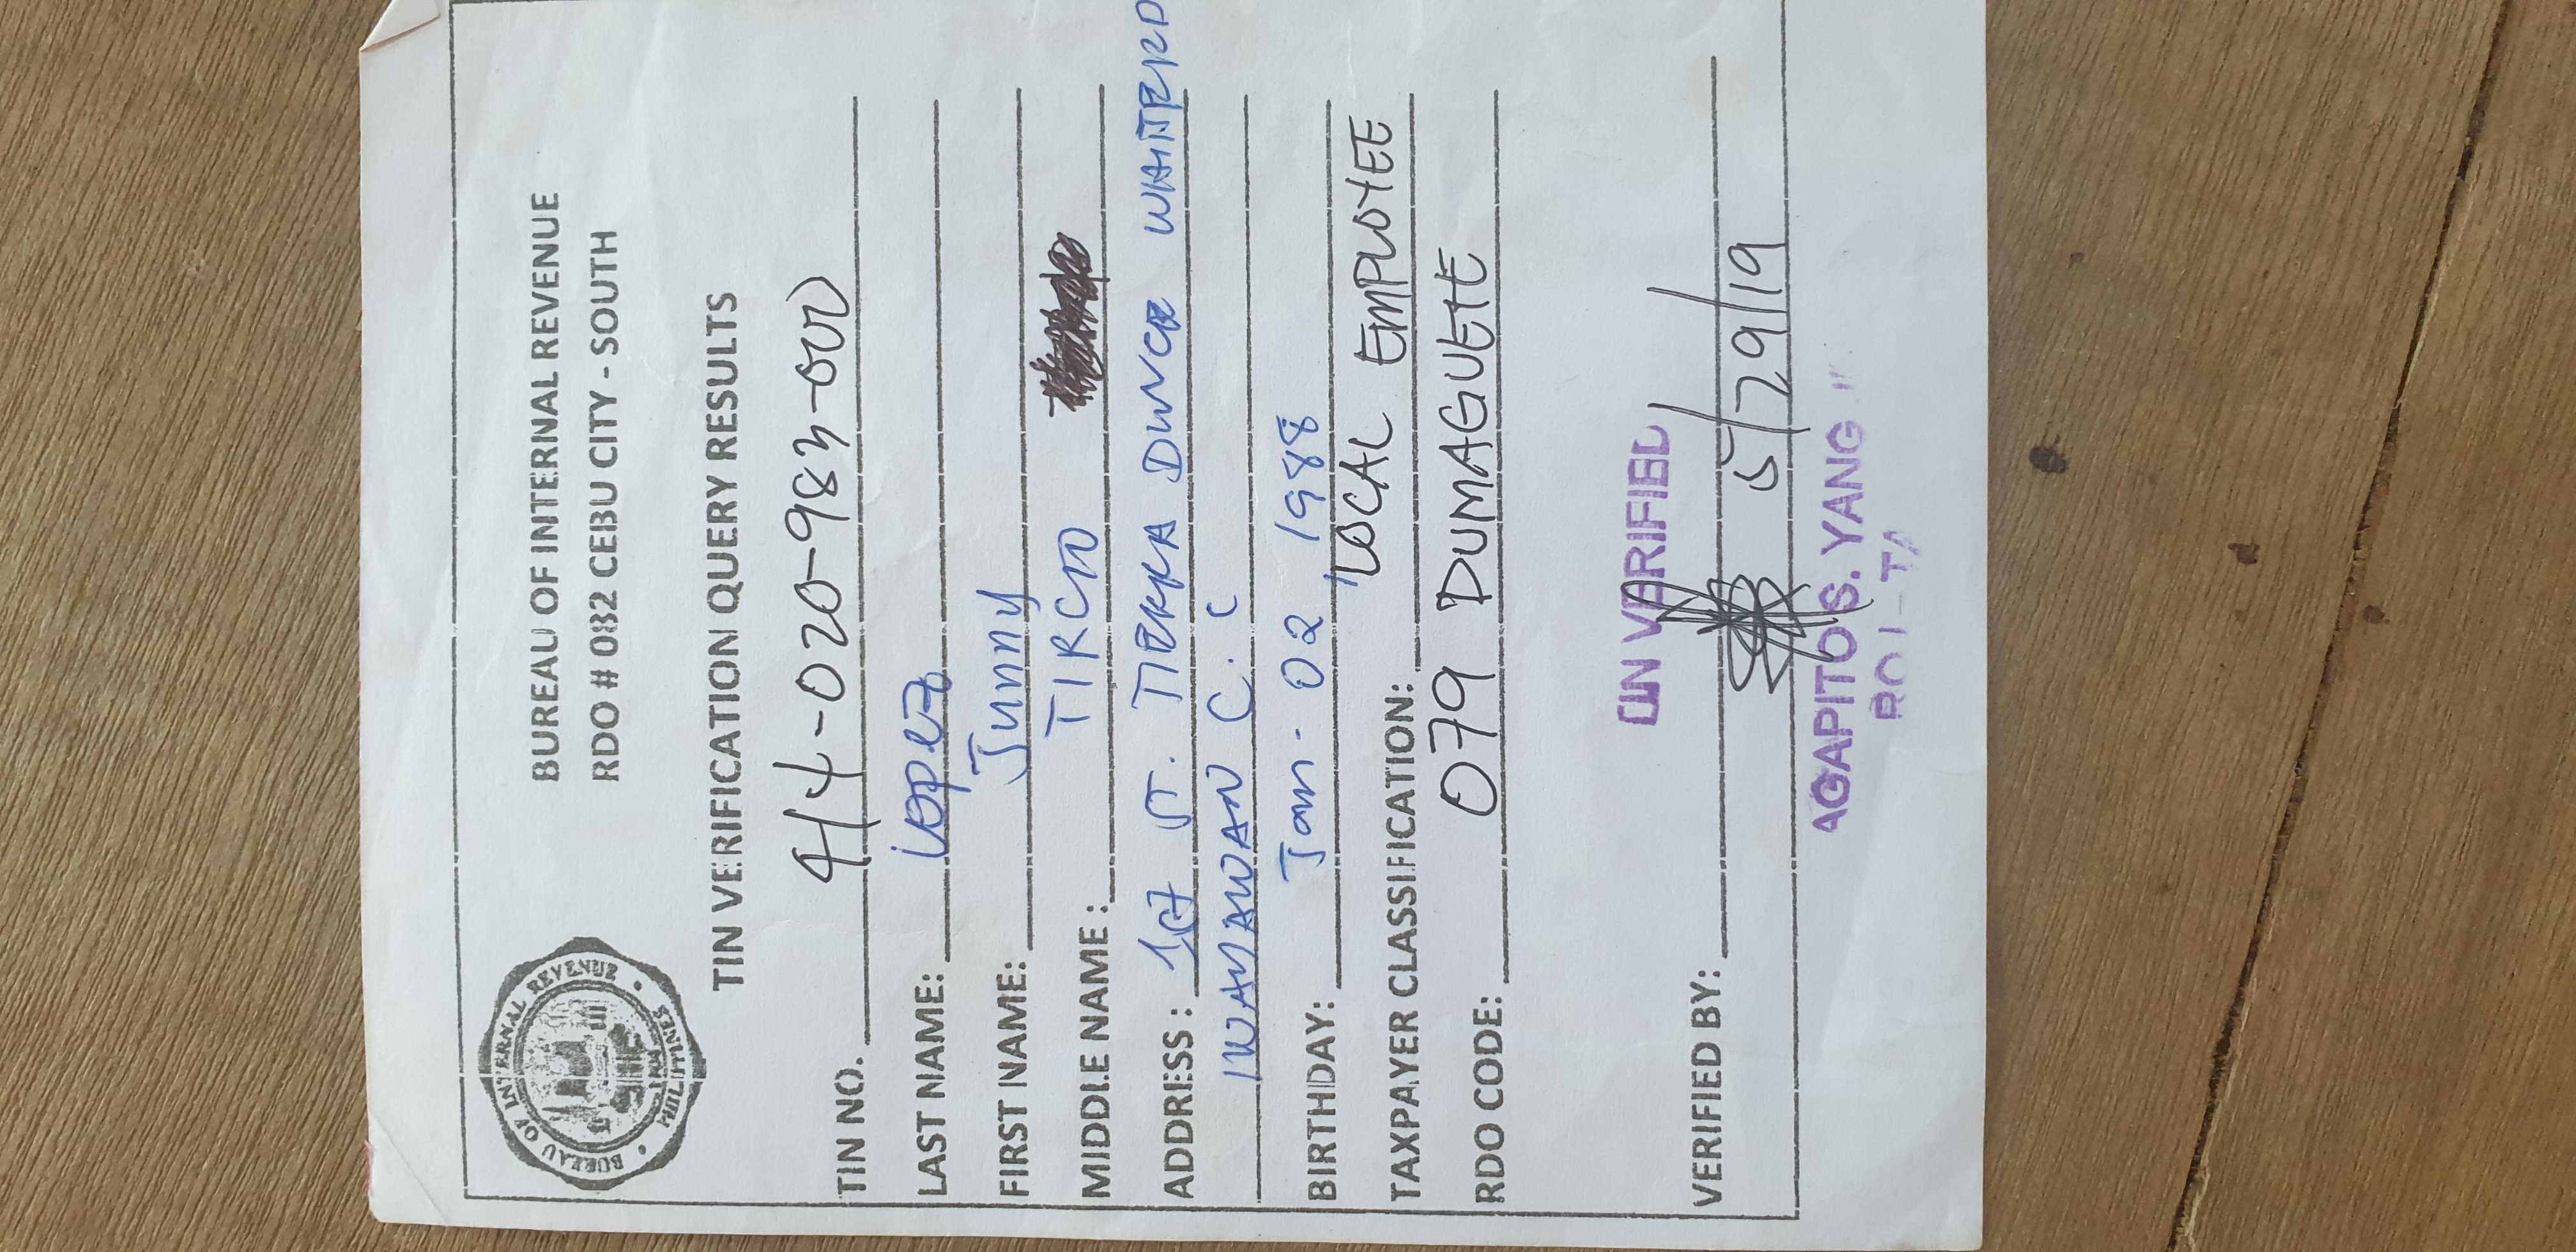 BUREAU OF INTERNAL REVENUE
RDO # 082 CEBU CITY - SOUTH
BUREAU OF INTERNAL REVENUE
PHILIPPINES
TIN VERIFICATION QUERY RESULTS
TIN NO. 414-020-983-000
LAST NAME: Lopez
FIRST NAME: Junny
MIDDLE NAME: TIRCO
ADDRESS: 1st ST.
C. C
BIRTHDAY: Jan. 02, 1988
TAXPAYER CLASSIFICATION: LOCAL EMPLOYEE
RDO CODE: 079 DUMAGUETE
TIN VERIFIED
VERIFIED BY: 5/29/19
AGAPITO S. YANG